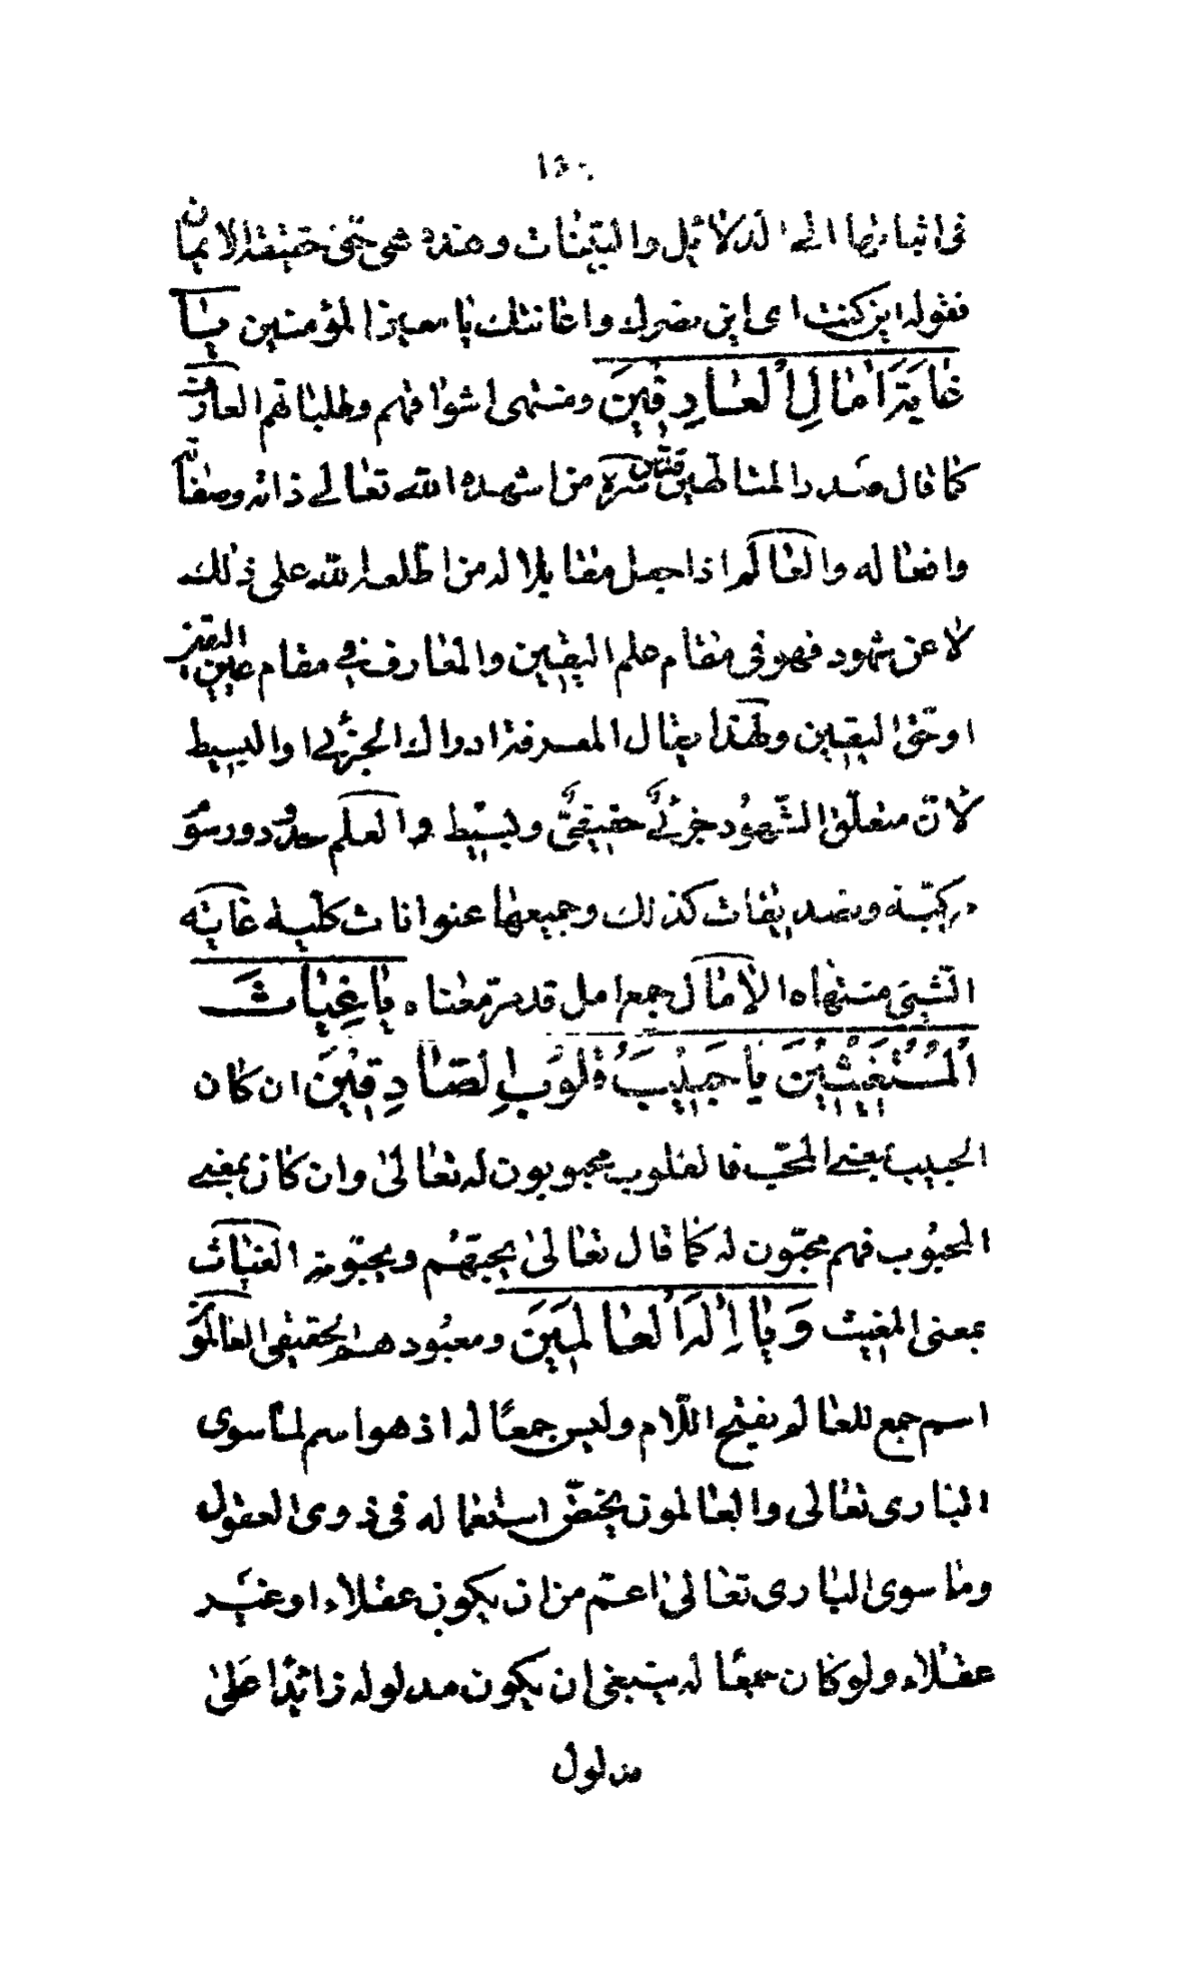 ١٥٠
فى اثباتها الى الدلائل والبيّنات وهذه هى حتى حقيقة الايمان
فقوله اين كنت اى اين نصرك واغاثتك يا معين المؤمنين يا
غايَةَ اٰمالِ الْعارِفينَ ومنتهى اشواقهم وطلباتهم العارف
كما قال صدر المتالهين قدّس سرّه من اشهده الله تعالى ذاته وصفاته
وافعاله والعالم اذا جعل مقابلا له من اطلعه الله على ذلك
لا عن شهود فهو فى مقام علم اليقين والعارف فى مقام عين اليقين
او حقّ اليقين ولهذا يقال المعرفة ادراك الجزئى او البسيط
لانّ متعلّق الشّهود جزئىٌّ حقيقىٌّ وبسيط والعلم حدود ورسوم
مركّبة وتصديقات كذلك وجميعها عنوانات كلّية غاية
الشّىء منتهاه الاٰمال جمع امل قد مرّ معناه يا غِياثَ
الْمُسْتَغيثينَ يا حَبيبَ قُلُوبِ الصّادِقينَ ان كان
الحبيب بمعنى المحبّ فالقلوب محبوبون له تعالى وان كان بمعنى
المحبوب فهم محبّون له كما قال تعالى يحبّهم ويحبّونه الغياث
بمعنى المغيث وَيا اِلٰهَ الْعالَمينَ ومعبودهم الحقيقى العالمون
اسم جمع للعالم بفتح اللّام وليس جمعًا له اذ هو اسم لما سوى
البارى تعالى والعالمون يختصّ استعماله فى ذوى العقول
وما سوى البارى تعالى اعمّ من ان يكون عقلاء او غير
عقلاء ولو كان جمعًا له ينبغى ان يكون مدلوله زائدًا على
مدلول